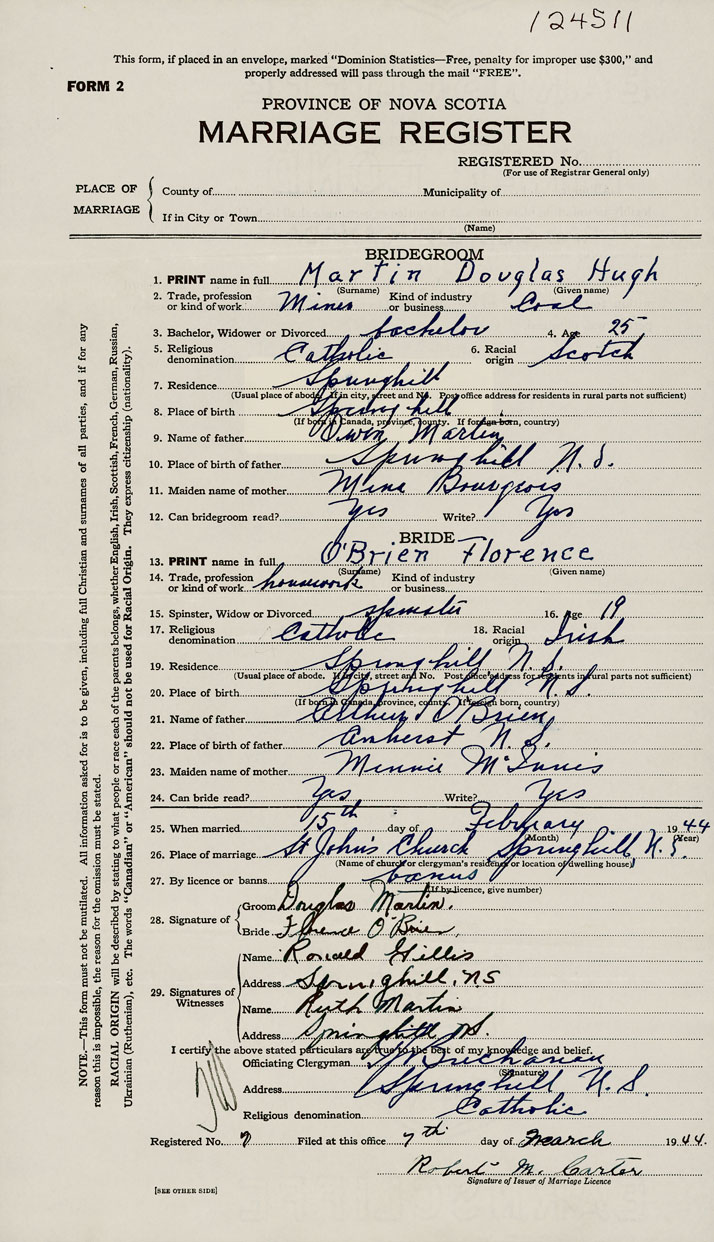 124511
This form, if placed in an envelope, marked "Dominion Statistics—Free, penalty for improper use $300," and
properly addressed will pass through the mail "FREE".
FORM 2
PROVINCE OF NOVA SCOTIA
MARRIAGE REGISTER
REGISTERED No.
(For use of Registrar General only)
PLACE OF MARRIAGE
County of Municipality of
If in City or Town
(Name)
BRIDEGROOM
1. PRINT name in full Martin Douglas Hugh
(Surname) (Given name)
2. Trade, profession or kind of work Miner Kind of industry or business Coal
3. Bachelor, Widower or Divorced bachelor 4. Age 25
5. Religious denomination Catholic 6. Racial origin Scotch
7. Residence Springhill
(Usual place of abode. If in city, street and No. Post office address for residents in rural parts not sufficient)
8. Place of birth Springhill
(If born in Canada, province, county. If foreign born, country)
9. Name of father Owen Martin
10. Place of birth of father Springhill N.S.
11. Maiden name of mother Mina Bourgeois
12. Can bridegroom read? Yes Write? Yes
BRIDE
13. PRINT name in full O'Brien Florence
(Surname) (Given name)
14. Trade, profession or kind of work housework Kind of industry or business
15. Spinster, Widow or Divorced spinster 16. Age 19
17. Religious denomination Catholic 18. Racial origin Irish
19. Residence Springhill N.S.
(Usual place of abode. If in city, street and No. Post office address for residents in rural parts not sufficient)
20. Place of birth Springhill N.S.
(If born in Canada, province, county. If foreign born, country)
21. Name of father Arthur O'Brien
22. Place of birth of father Amherst N.S.
23. Maiden name of mother Minnie McInnis
24. Can bride read? Yes Write? Yes
25. When married 15th day of February 1944
(Month) (Year)
26. Place of marriage St John's Church Springhill, N.S.
(Name of church or clergyman's residence or location of dwelling house)
27. By licence or banns banns
(If by licence, give number)
28. Signature of
Groom Douglas Martin.
Bride Florence O'Brien
29. Signatures of Witnesses
Name Ronald Gillis
Address Springhill, NS
Name Ruth Martin
Address Springhill N.S.
I certify the above stated particulars are true to the best of my knowledge and belief.
Officiating Clergyman Buchanan
(Signature)
Address Springhill N.S.
Religious denomination Catholic
Registered No. 7 Filed at this office 7th day of March 1944.
Robert M. Carter
Signature of Issuer of Marriage Licence
[SEE OTHER SIDE]
NOTE.—This form must not be mutilated. All information asked for is to be given, including full Christian and surnames of all parties, and if for any
reason this is impossible, the reason for the omission must be stated.
RACIAL ORIGIN will be described by stating to what people or race each of the parents belongs, whether English, Irish, Scottish, French, German, Russian,
Ukrainian (Ruthenian), etc. The words "Canadian" or "American" should not be used for Racial Origin. They express citizenship (nationality).